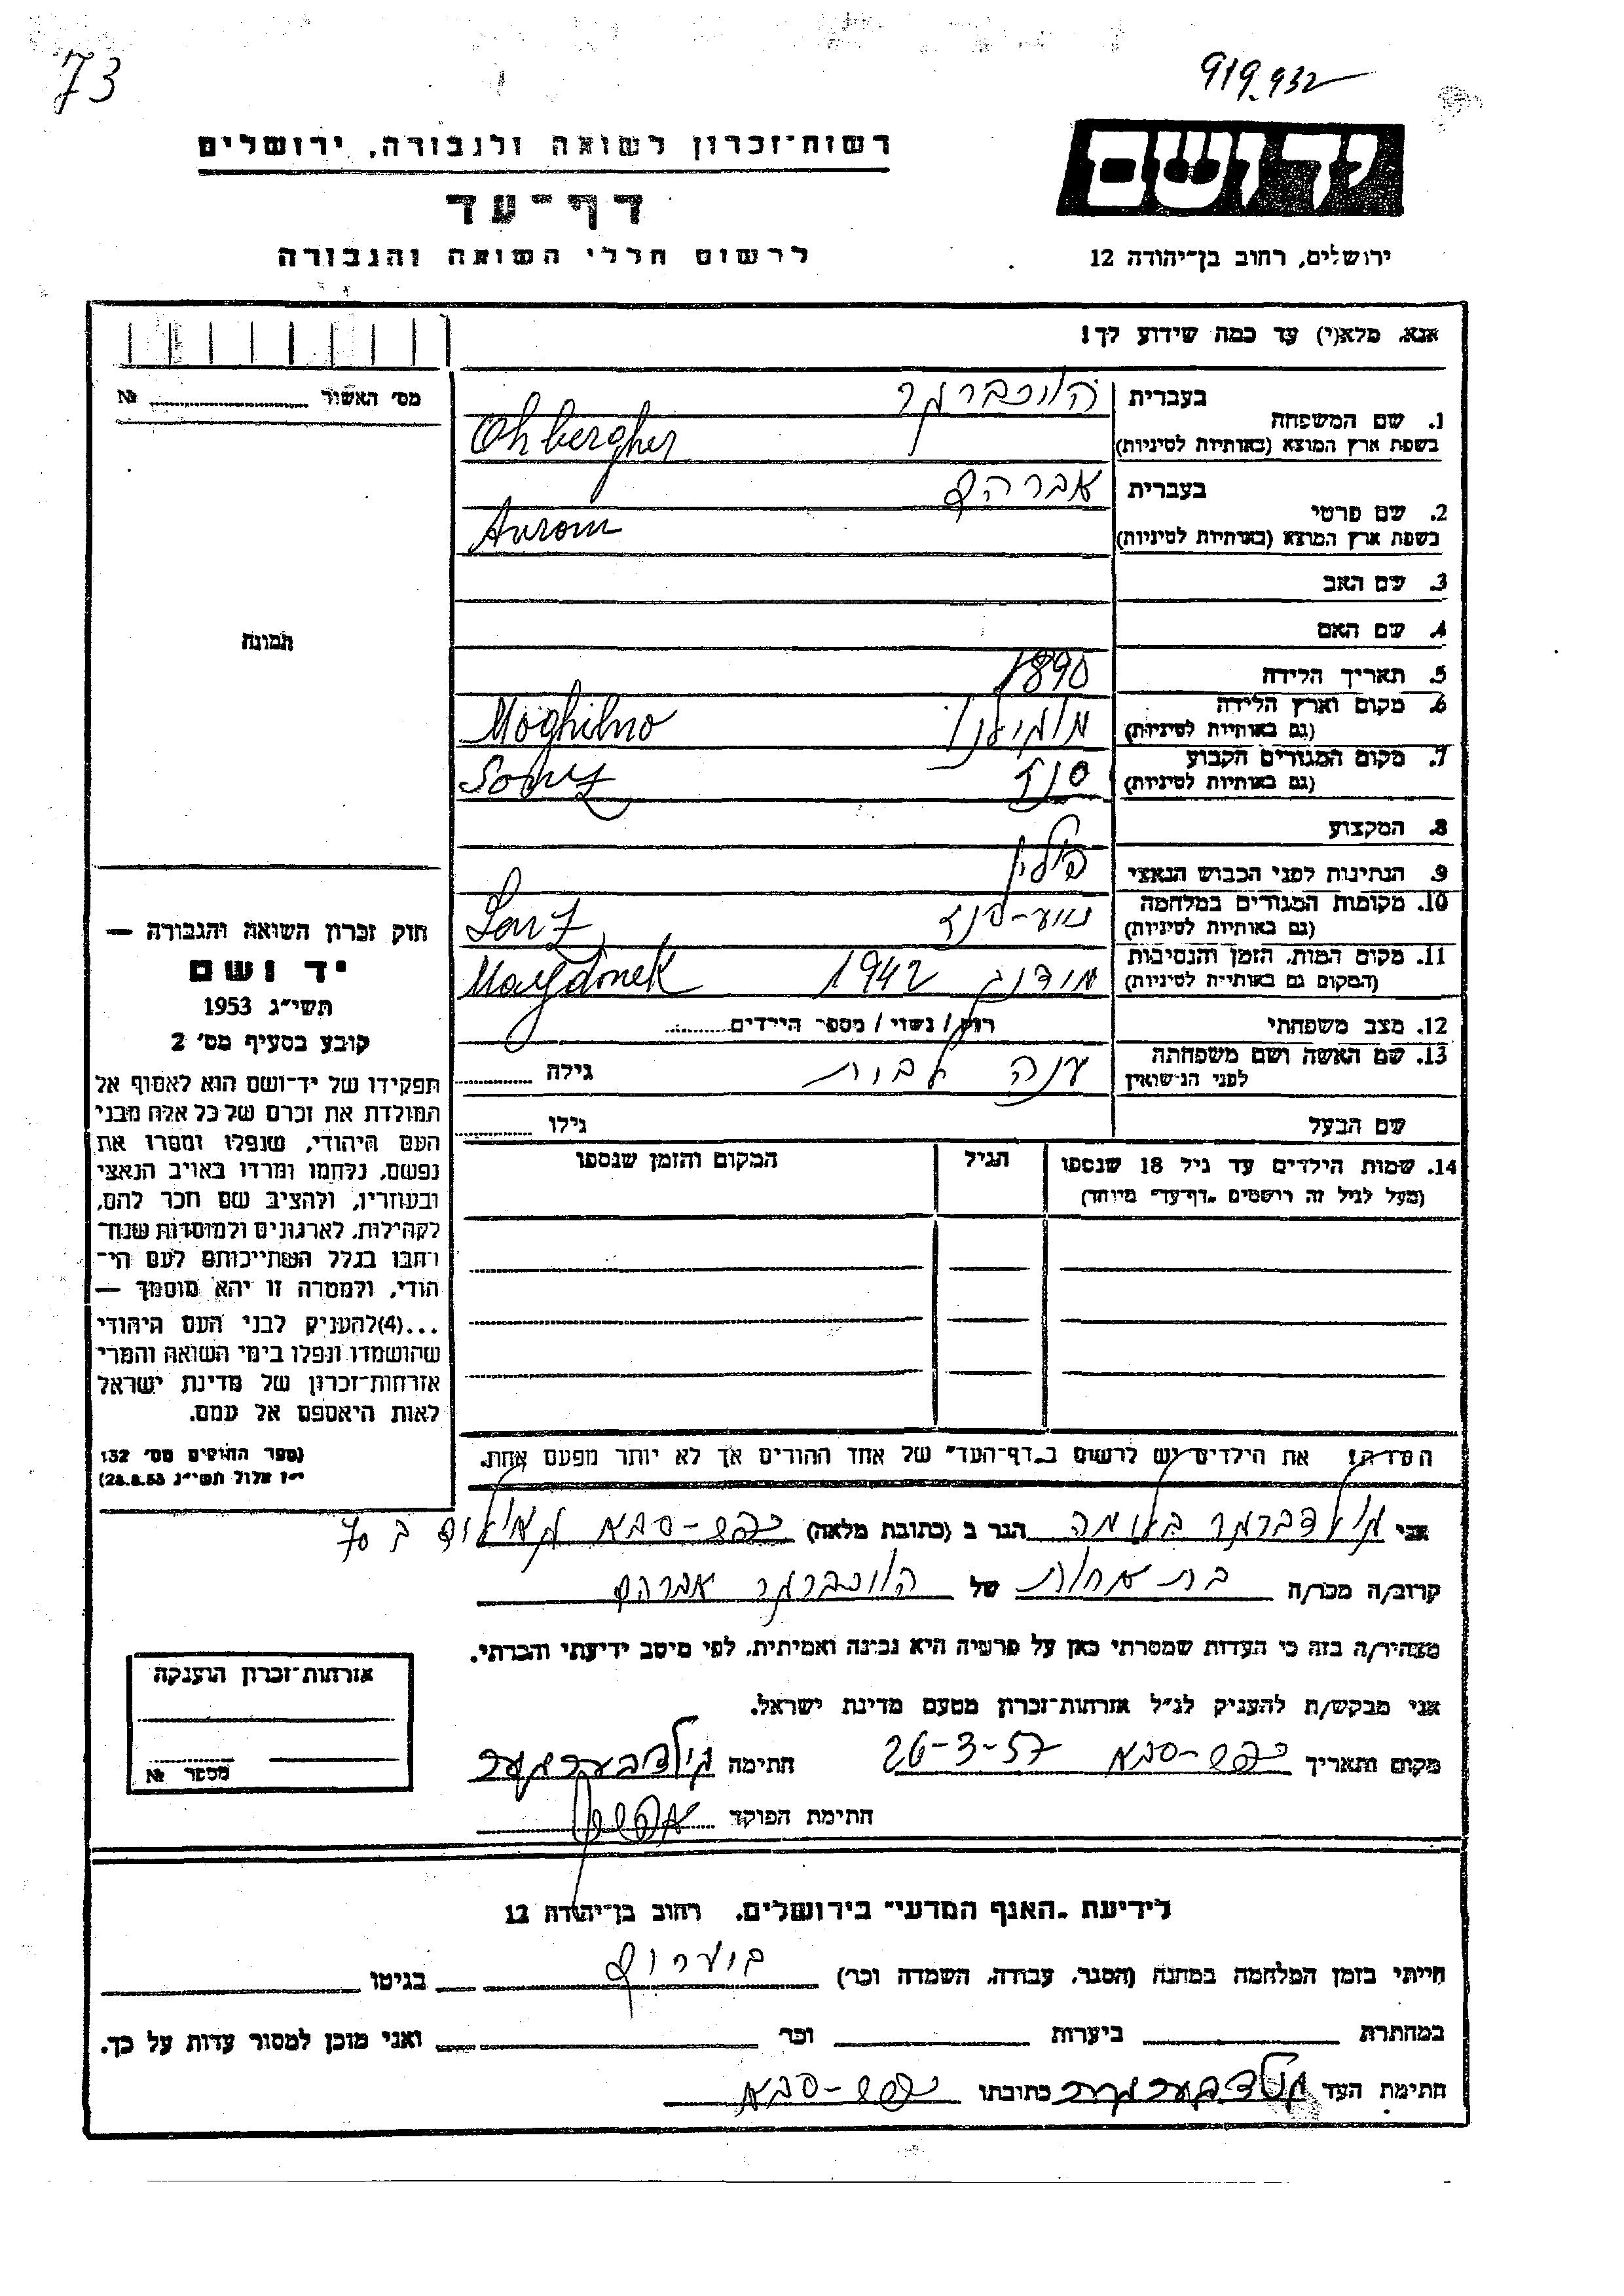 73
919.932
רשות־זכרון לשואה ולגבורה, ירושלים
יד ושם
דף־עד
לרשום חללי השואה והגבורה
ירושלים, רחוב בן־יהודה 12
אנא, מלא(י) עד כמה שידוע לך!
מס׳ האשור № 
1. שם המשפחה
בעברית הוכברגר
בשפת ארץ המוצא (באותיות לטיניות) Ohbergher
2. שם פרטי
בעברית אברהם
בשפת ארץ המוצא (באותיות לטיניות) Avrom
3. שם האב
4. שם האם
תמונה
5. תאריך הלידה 1890
6. מקום וארץ הלידה
(גם באותיות לטיניות) מוגילנו Moghilno
7. מקום המגורים הקבוע
(גם באותיות לטיניות) סנז
8. המקצוע
9. הנתינות לפני הכבוש הנאצי פולין
10. מקומות המגורים במלחמה
(גם באותיות לטיניות) סנז
11. מקום המות, הזמן והנסיבות
(המקום גם באותיות לטיניות) 1942 Maydonek
12. מצב משפחתי רוק / נשוי / מספר הילדים
13. שם האשה ושם משפחתה
לפני הנישואין ענה גילה
שם הבעל גילו
14. שמות הילדים עד גיל 18 שנספו
(מעל לגיל זה רושמים „דף־עד״ מיוחד)
הגיל
המקום והזמן שנספו
הערה! את הילדים יש לרשום ב„דף־העד״ של אחד ההורים אך לא יותר מפעם אחת.
חוק זכרון השואה והגבורה —
יד ושם
תשי״ג 1953
קובע בסעיף מס׳ 2
תפקידו של יד־ושם הוא לאסוף אל
המולדת את זכרם של כל אלה מבני
העם היהודי, שנפלו ומסרו את
נפשם, נלחמו ומרדו באויב הנאצי
ובעוזריו, ולהציב שם וזכר להם,
לקהילות, לארגונים ולמוסדות שנח־
רבו בגלל השתייכותם לעם הי־
הודי, ולמטרה זו יהא מוסמך —
...(4) להעניק לבני העם היהודי
שהושמדו ונפלו בימי השואה והמרי
אזרחות־זכרון של מדינת ישראל
לאות היאספם אל עמם.
(ספר החוקים מס׳ 132
י״ז אלול תשי״ג 28.8.53)
אני גולדברגר הגר ב (כתובת מלאה) כפר־סבא 70
קרוב/ה מכר/ה בת אחות של הוכברגר אברהם
מצהיר/ה בזה כי העדות שמסרתי כאן על פרטיה היא נכונה ואמיתית, לפי מיטב ידיעתי והכרתי.
אני מבקש/ת להעניק לנ״ל אזרחות־זכרון מטעם מדינת ישראל.
מקום ותאריך כפר־סבא 26-3-57 חתימה גולדבערגער
חתימת הפוקד
אזרחות־זכרון הוענקה
מספר №
לידיעת „האגף המדעי״ בירושלים, רחוב בן־יהודה 12
חייתי בזמן המלחמה במחנה (הסגר, עבודה, השמדה וכו׳) בגיטו
במחתרת ביערות וכו׳ ואני מוכן למסור עדות על כך.
חתימת העד גולדבערגער כתובתו כפר־סבא